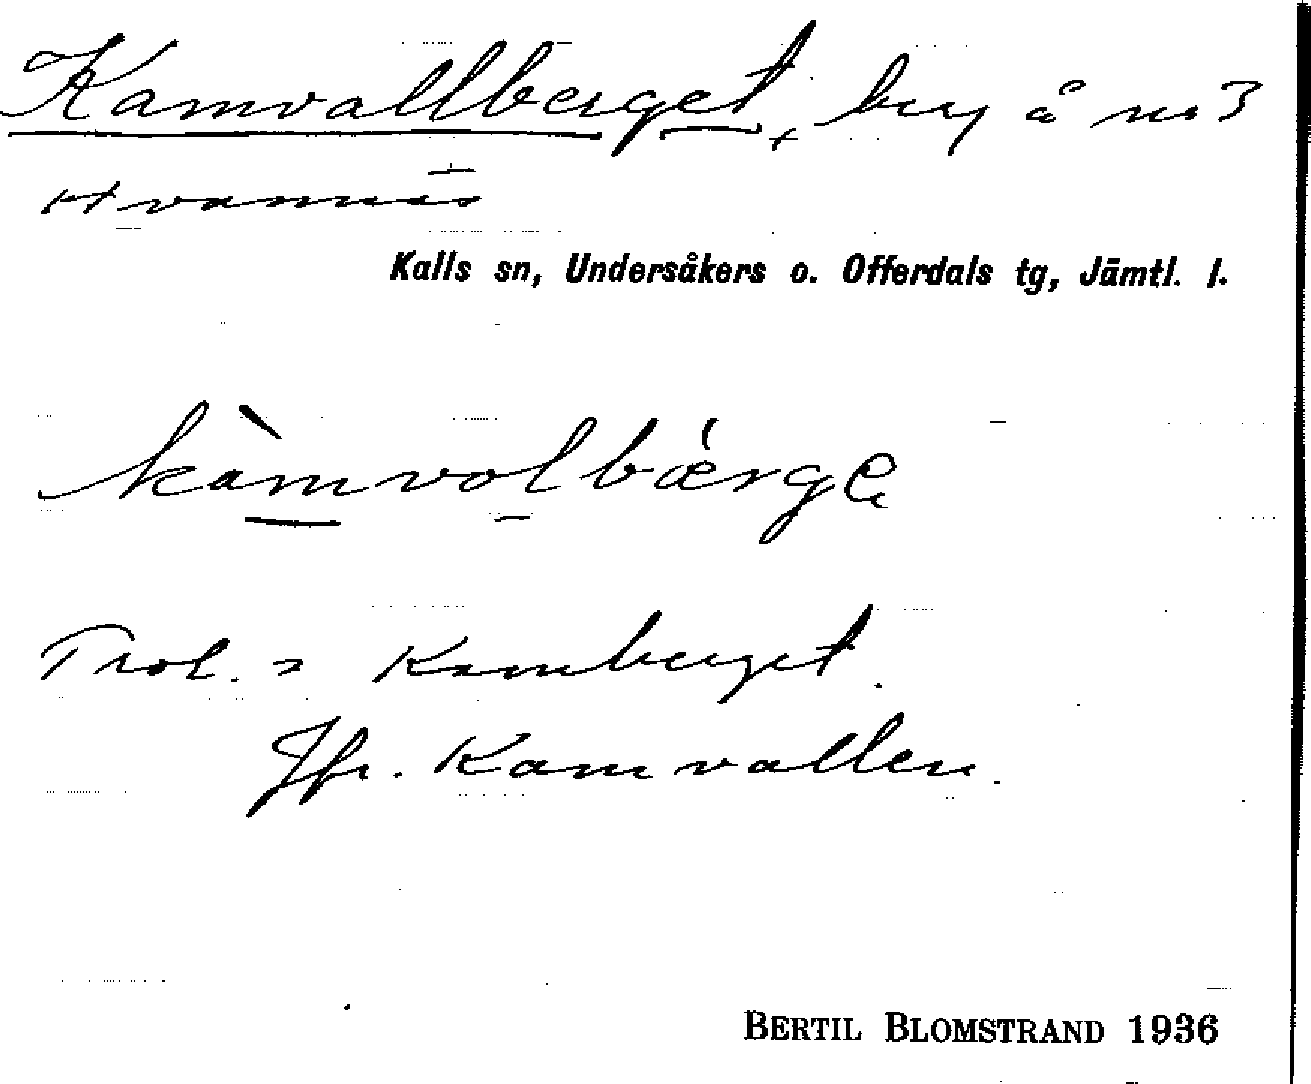 Kamvallberget, berg å nr 3
Hvamnäs
Kalls sn, Undersåkers o. Offerdals tg, Jämtl. l.
kàmvolbǽrge
Trol. = Kamberget.
Jfr. Kamvallen.
BERTIL BLOMSTRAND 1936